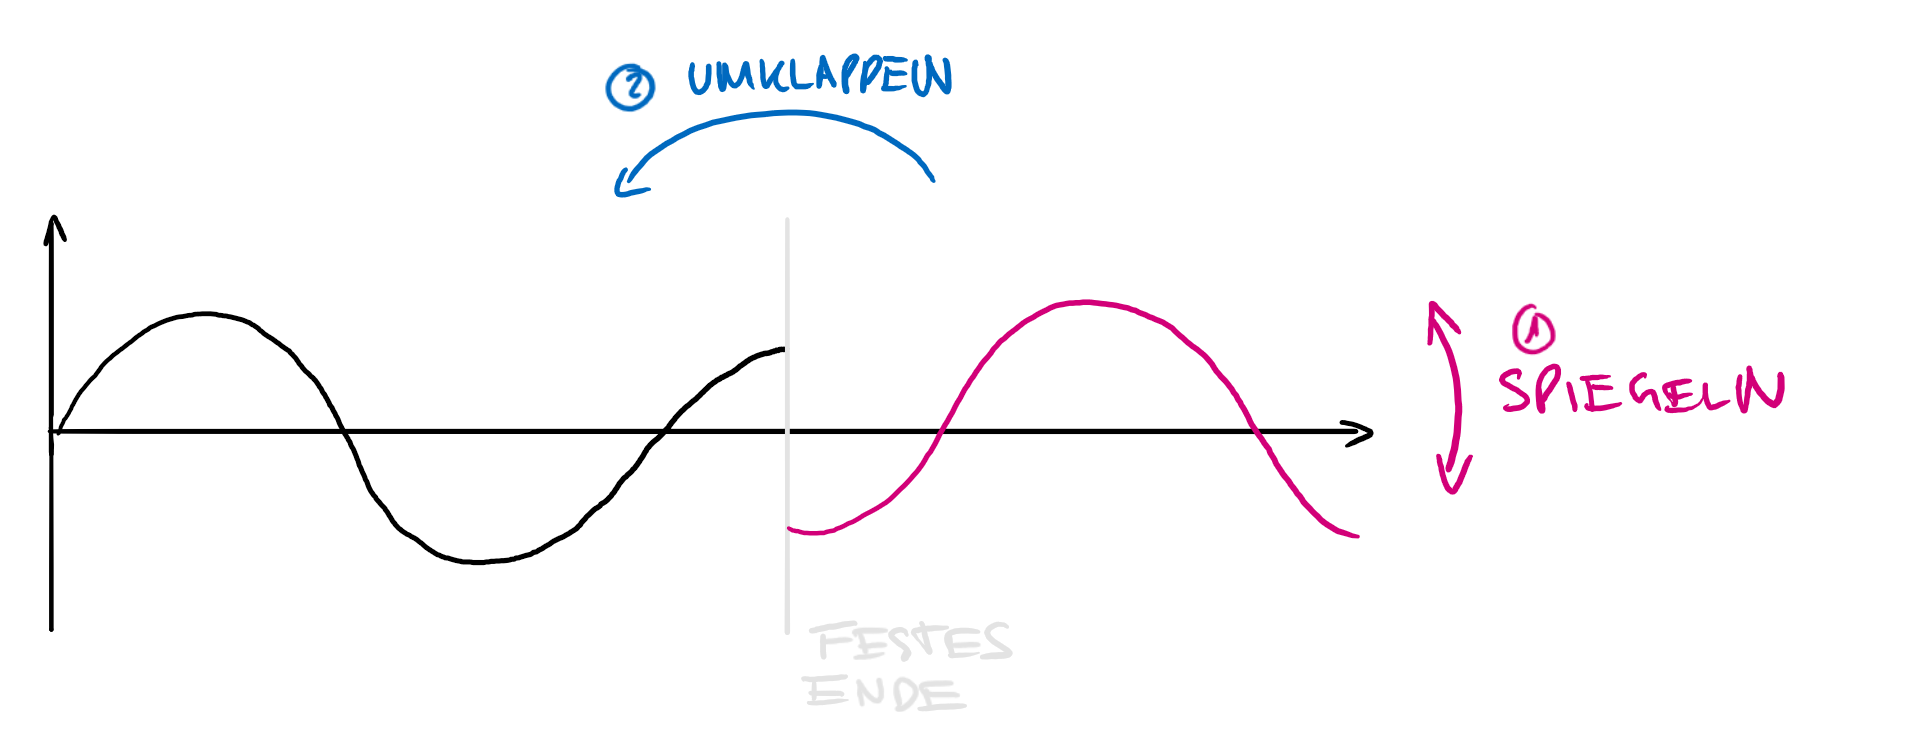 ② UMKLAPPEN
①
SPIEGELN
FESTES
ENDE